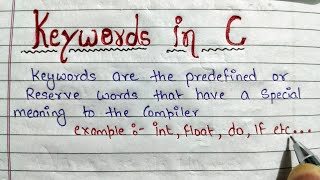 Keywords in C
Keywords are the predefined or
Reserve words that have a special
meaning to the Compiler
example :- int, float, do, If etc...